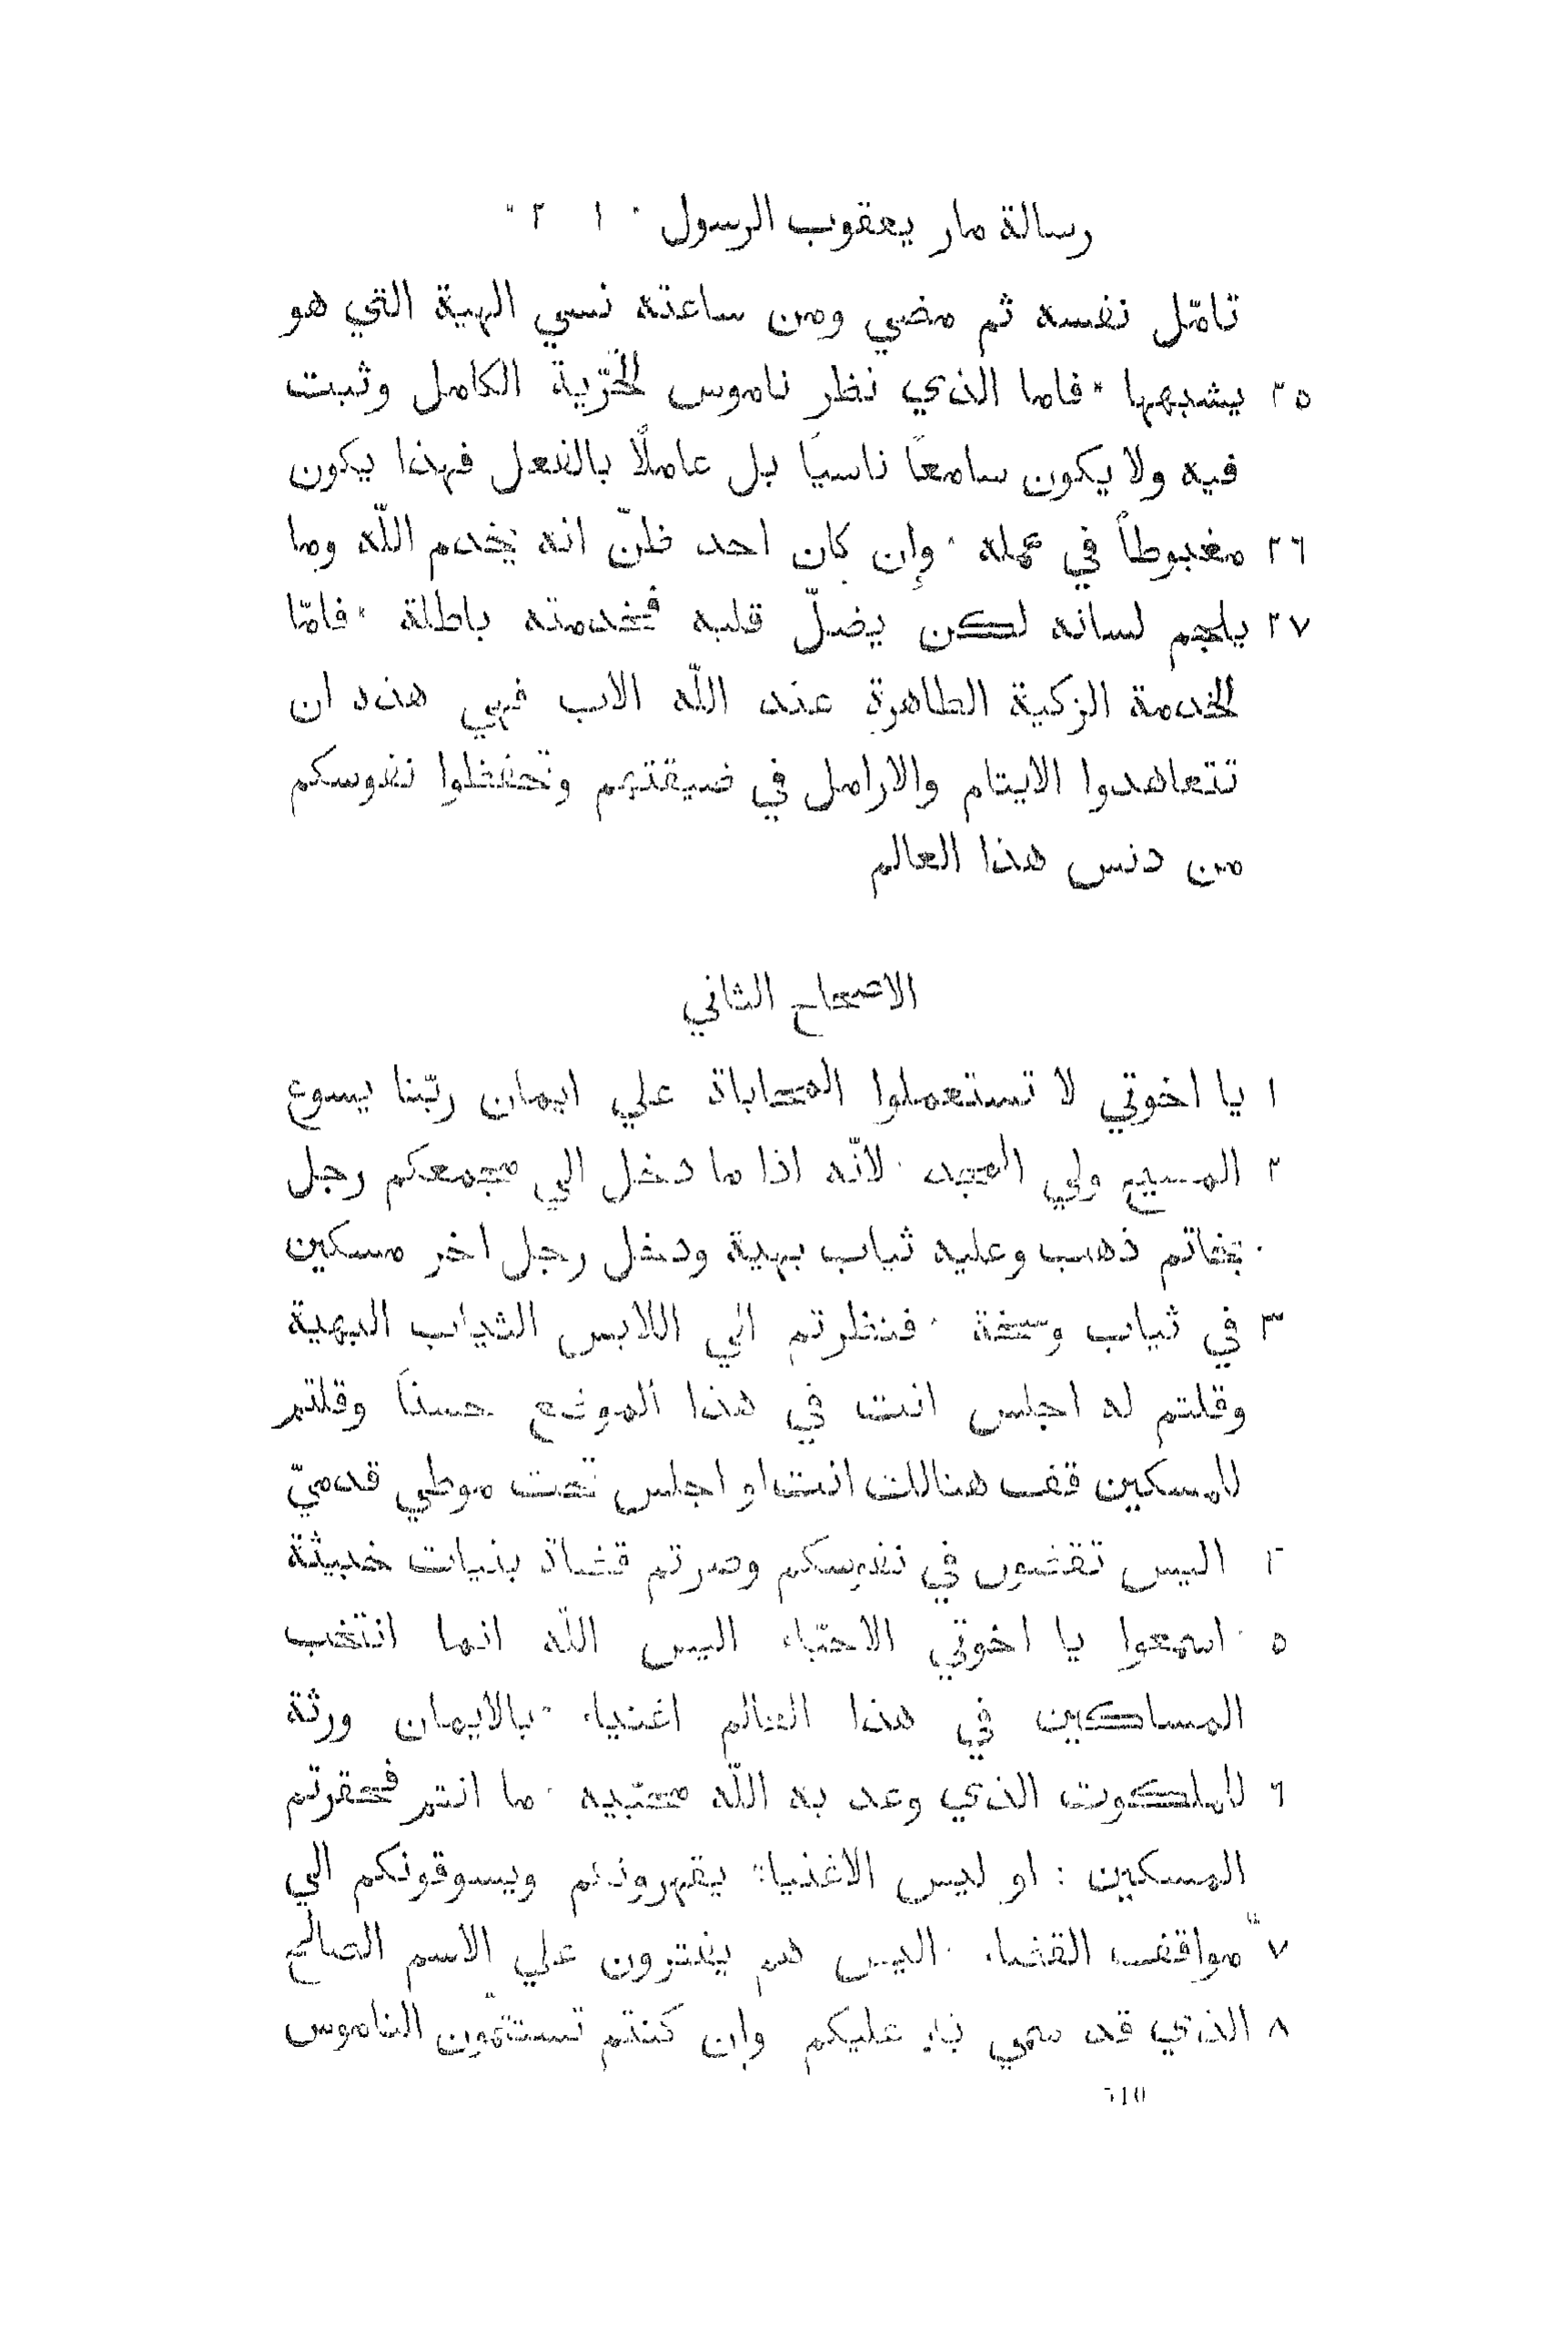 رسالة مار يعقوب الرسول ٠ ١ ٢
تامّل نفسه ثم مضي ومن ساعته نسي الهية التي هو
٢٥ يشبهها * فاما الذي نظر ناموس الحرّية الكامل وثبت
فيه ولا يكون سامعاً ناسياً بل عاملاً بالفعل فهذا يكون
٢٦ مغبوطاً في عمله * وإن كان احد ظنّ انه يخدم اللّه وما
٢٧ يلجم لسانه لكن يضلّ قلبه فخدمته باطلة * فامّا
الخدمة الزكية الطاهرة عند اللّه الاب فهي هذه ان
تتعاهدوا الايتام والارامل في ضيقتهم وتحفظوا نفوسكم
من دنس هذا العالم
الاصحاح الثاني
١ يا اخوتي لا تستعملوا المحاباة علي ايمان ربّنا يسوع
٢ المسيح ولي المجد * لانّه اذا ما دخل الي مجمعكم رجل
بخاتم ذهب وعليه ثياب بهية ودخل رجل اخر مسكين
٣ في ثياب وسخة * فنظرتم الي اللابس الثياب البهية
وقلتم له اجلس انت في هذا الموضع حسناً وقلتم
للمسكين قف هنالك انت او اجلس تحت موطي قدميّ
اليس تقضون في نفوسكم وصرتم قضاة بنيات خبيثة
٥ اسمعوا يا اخوتي الاحبّاء اليس اللّه انما انتخب
المساكين في هذا العالم اغنياء بالايمان ورثة
٦ للملكوت الذي وعد به اللّه محبّيه * ما انتم فحقرتم
المسكين : او ليس الاغنياء يقهرونكم ويسوقونكم الي
٧ مواقف القضاء * اليس هم يفترون علي الاسم الصالح
٨ الذي قد سمي به عليكم وان كنتم تستتمّون الناموس
610